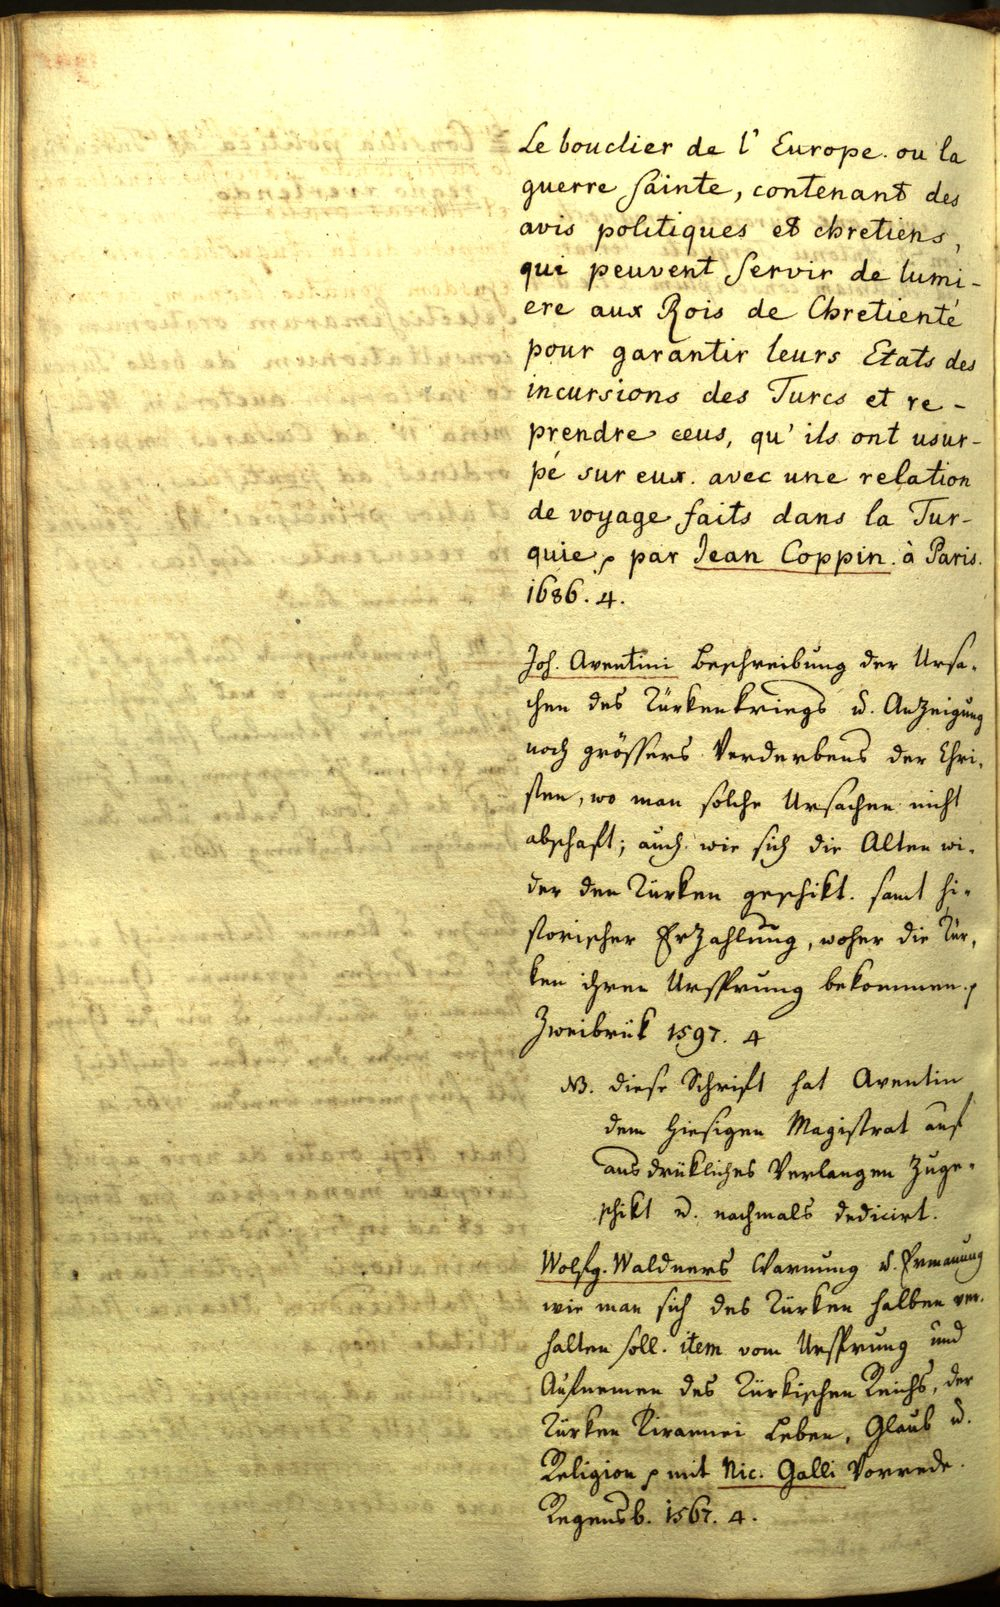 Le bouclier de l' Europe. ou la
guerre sainte, contenant des
avis politiques et chretiens,
qui peuvent servir de lumi-
ere aux Rois de Chretienté
pour garantir leurs Etats des
incursions des Turcs et re-
prendre ceus, qu' ils ont usur-
pé sur eux. avec une relation
de voyage faits dans la Tur-
quie, par Jean Coppin. à Paris.
1686. 4.
Joh. Aventini Beschreibung der Ursa-
chen des Türkenkriegs u. Anzeigung
noch grössers Verderbens der Chri-
sten, wo man solche Ursachen nicht
abschaft; auch wie sich die Alten wi-
der den Türken geschikt. samt hi-
storischer Erzahlung, woher die Tür-
ken ihren Ursprung bekommen.
Zweibrük 1597. 4
NB. diese Schrift hat Aventin
dem hiesigen Magistrat auf
ausdrükliches Verlangen zuge-
schikt u. nachmals dedicirt.
Wolfg. Waldners Warnung u. Ermanung
wie man sich des Türken halben ver-
halten soll. item vom Ursprung und
Aufnemen des Türkischen Reichs, der
Türken Tirannei Leben, Glaub u.
Religion mit Nic. Galli Vorrede.
Regensb. 1567. 4.